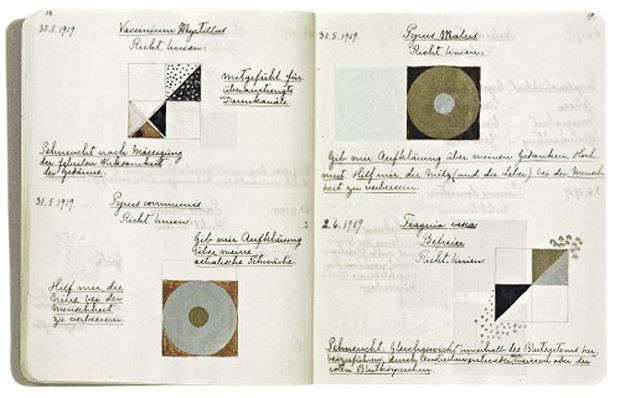 30.5.1919 Vaccinium Myrtillus
Richt Linien:
mitgefühl für
überanstrengte
Darmkanäle
Sehnsucht nach Mässigung
der febrilen Wirksamkeit
der Gedärme.
31.5.1919 Pyrus communis
Richt Linien:
Gib mir Aufklärung
über meine
astralische Schwäche.
Hilf mir, die
Niere bei der
Menschheit
zu verbessern.
31.5.1919. Pyrus Malus
Richt Linien:
Gib mir Aufklärung über meinen Gedanken Hoch
mut. Hilf mir, die Milz (und die Leber) bei der Mensch
heit zu verbessern.
2.6.1919 Fragaria vesca
Richt-Linien
Sehnsucht: Gleichgewicht innerhalb des Blutsystems her
beizuführen, durch entweder weissen oder der
roten Blutkörperchen.